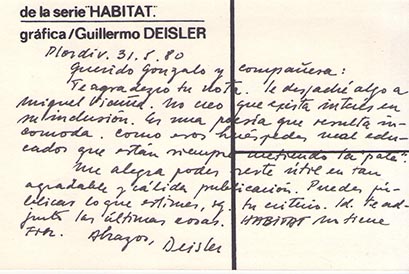 de la serie "HABITAT".
gráfica/Guillermo DEISLER
Plovdiv. 31.5.80
Querido Gonzalo y compañera:
Te agradezco tu nota. le despaché algo a
miguel No creo que exista interés en
su inclusión. Es una poesía que resulta in-
comoda. como esos huéspedes mal edu-
cados que están siempre metiendo la pata"
me alegra poder serte útil en tan
agradable y cálida publicación. Puedes pu-
blicar lo que estimes, tu criterio. Id. te ad-
junto las últimas cosas. HABITAT no tiene
Abrazos, Deisler